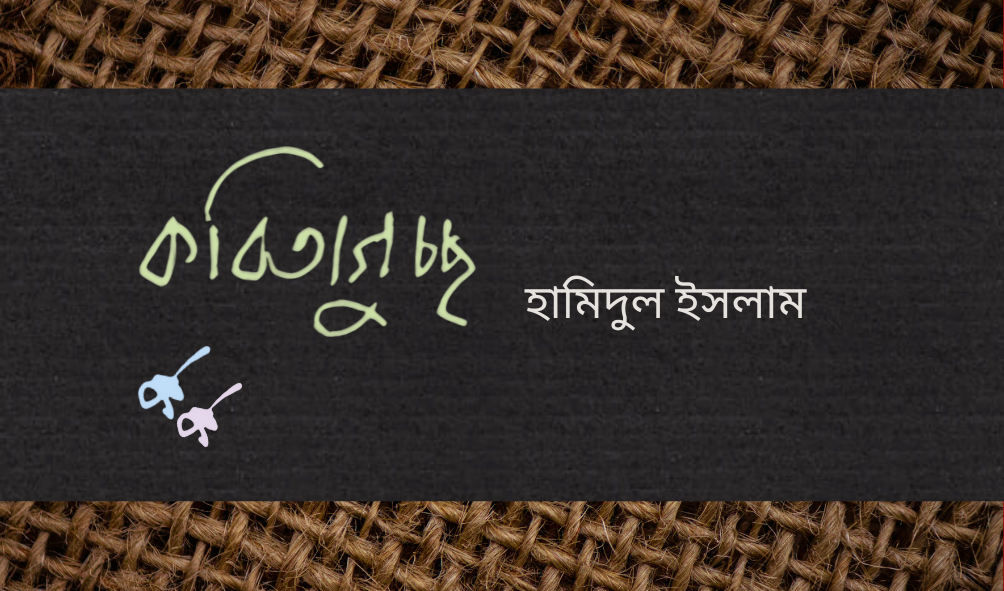 কবিতাগুচ্ছ
হামিদুল ইসলাম